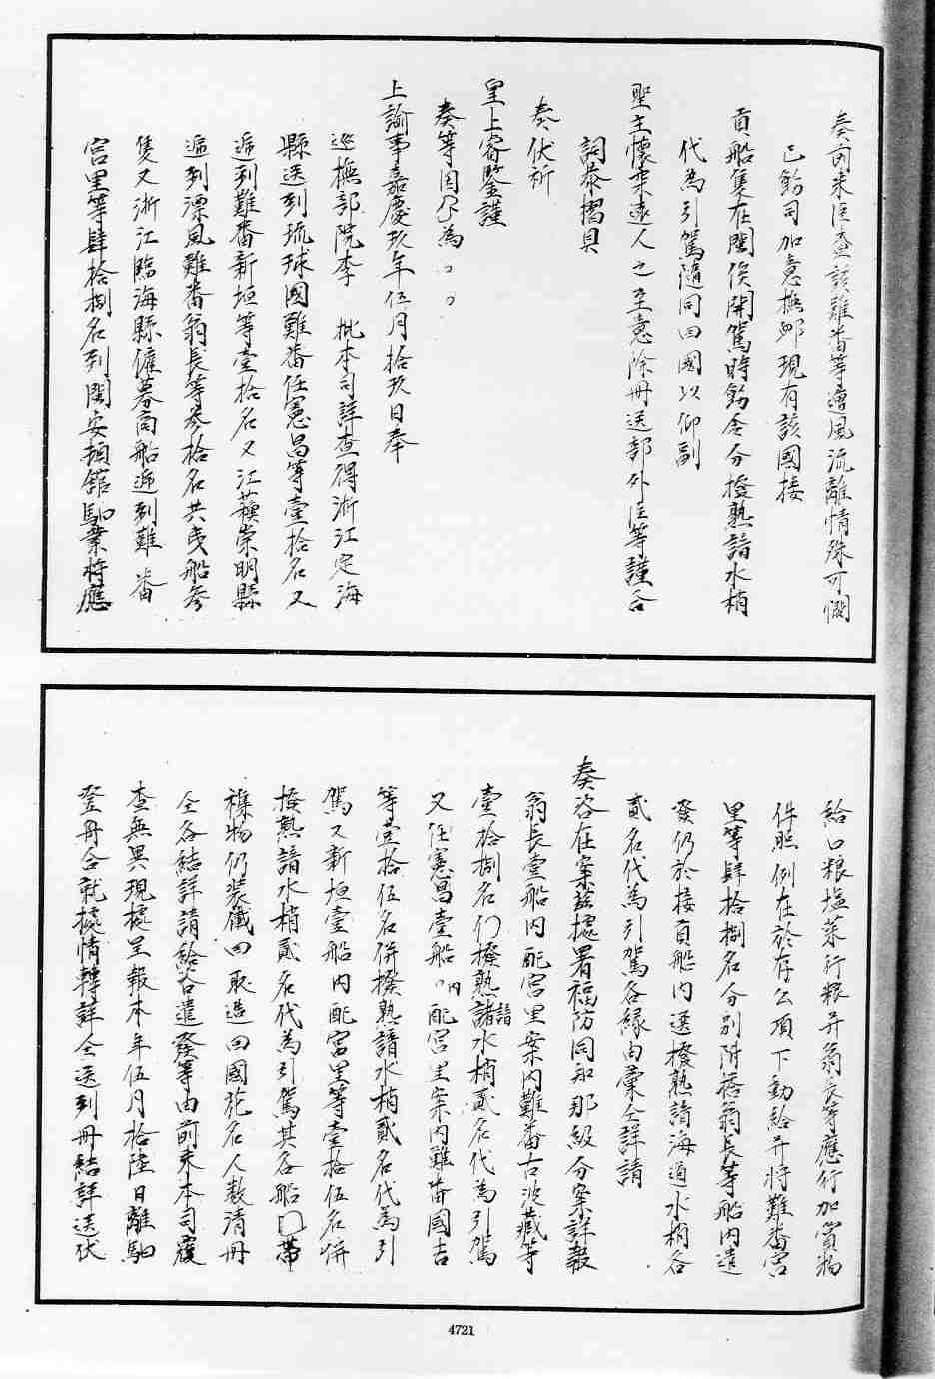 奏前來臣查該難番等遭風流離情殊可憫
已飭司加意撫卹現有該國接
貢船隻在閩俟開駕時飭令分撥熟諳水梢
代為引駕隨同回國以仰副
聖主懷柔遠人之至意除冊送部外臣等謹合
詞恭摺具
奏伏祈
皇上睿鑒謹
奏等因又為
上諭事嘉慶玖年伍月拾玖日奉
巡撫部院李 批本司詳查得浙江定海
縣送到琉球國難番任憲昌等壹拾名又
遞到難番新垣等壹拾名又江蘓崇明縣
遞到漂風難番翁長等叁拾名共曳船叁
隻又浙江臨海縣僱募商船遞到難番
宮里等肆拾捌名到閩安頓舘馹業將應
給口粮塩菜行粮并翁長等應行加賞物
件照例在於存公項下動給并將難番宮
里等肆拾捌名分別附搭翁長等船内遣
發仍於接貢船内選撥熟諳海道水梢各
貳名代為引駕各緣由彙全詳請
奏咨在案茲據署福防同知那級分案詳報
翁長壹船内配宮里案内難番古波藏等
壹拾捌名們撥熟諸諳水梢貳名代為引駕
又任憲昌壹船内配宮里案内難番國吉
等壹拾伍名併撥熟諳水梢貳名代為引
駕又新垣壹船内配宮里等壹拾伍名併
撥熟諳水梢貳名代為引駕其各船□帶
襍物仍裝儎回 取造回國花名人数清冊
仝各結詳請給咨遣發等由前来本司覆
查無異現據呈報本年伍月拾陸日離馹
登舟合就據情轉詳仝送到冊結詳送伏
4721